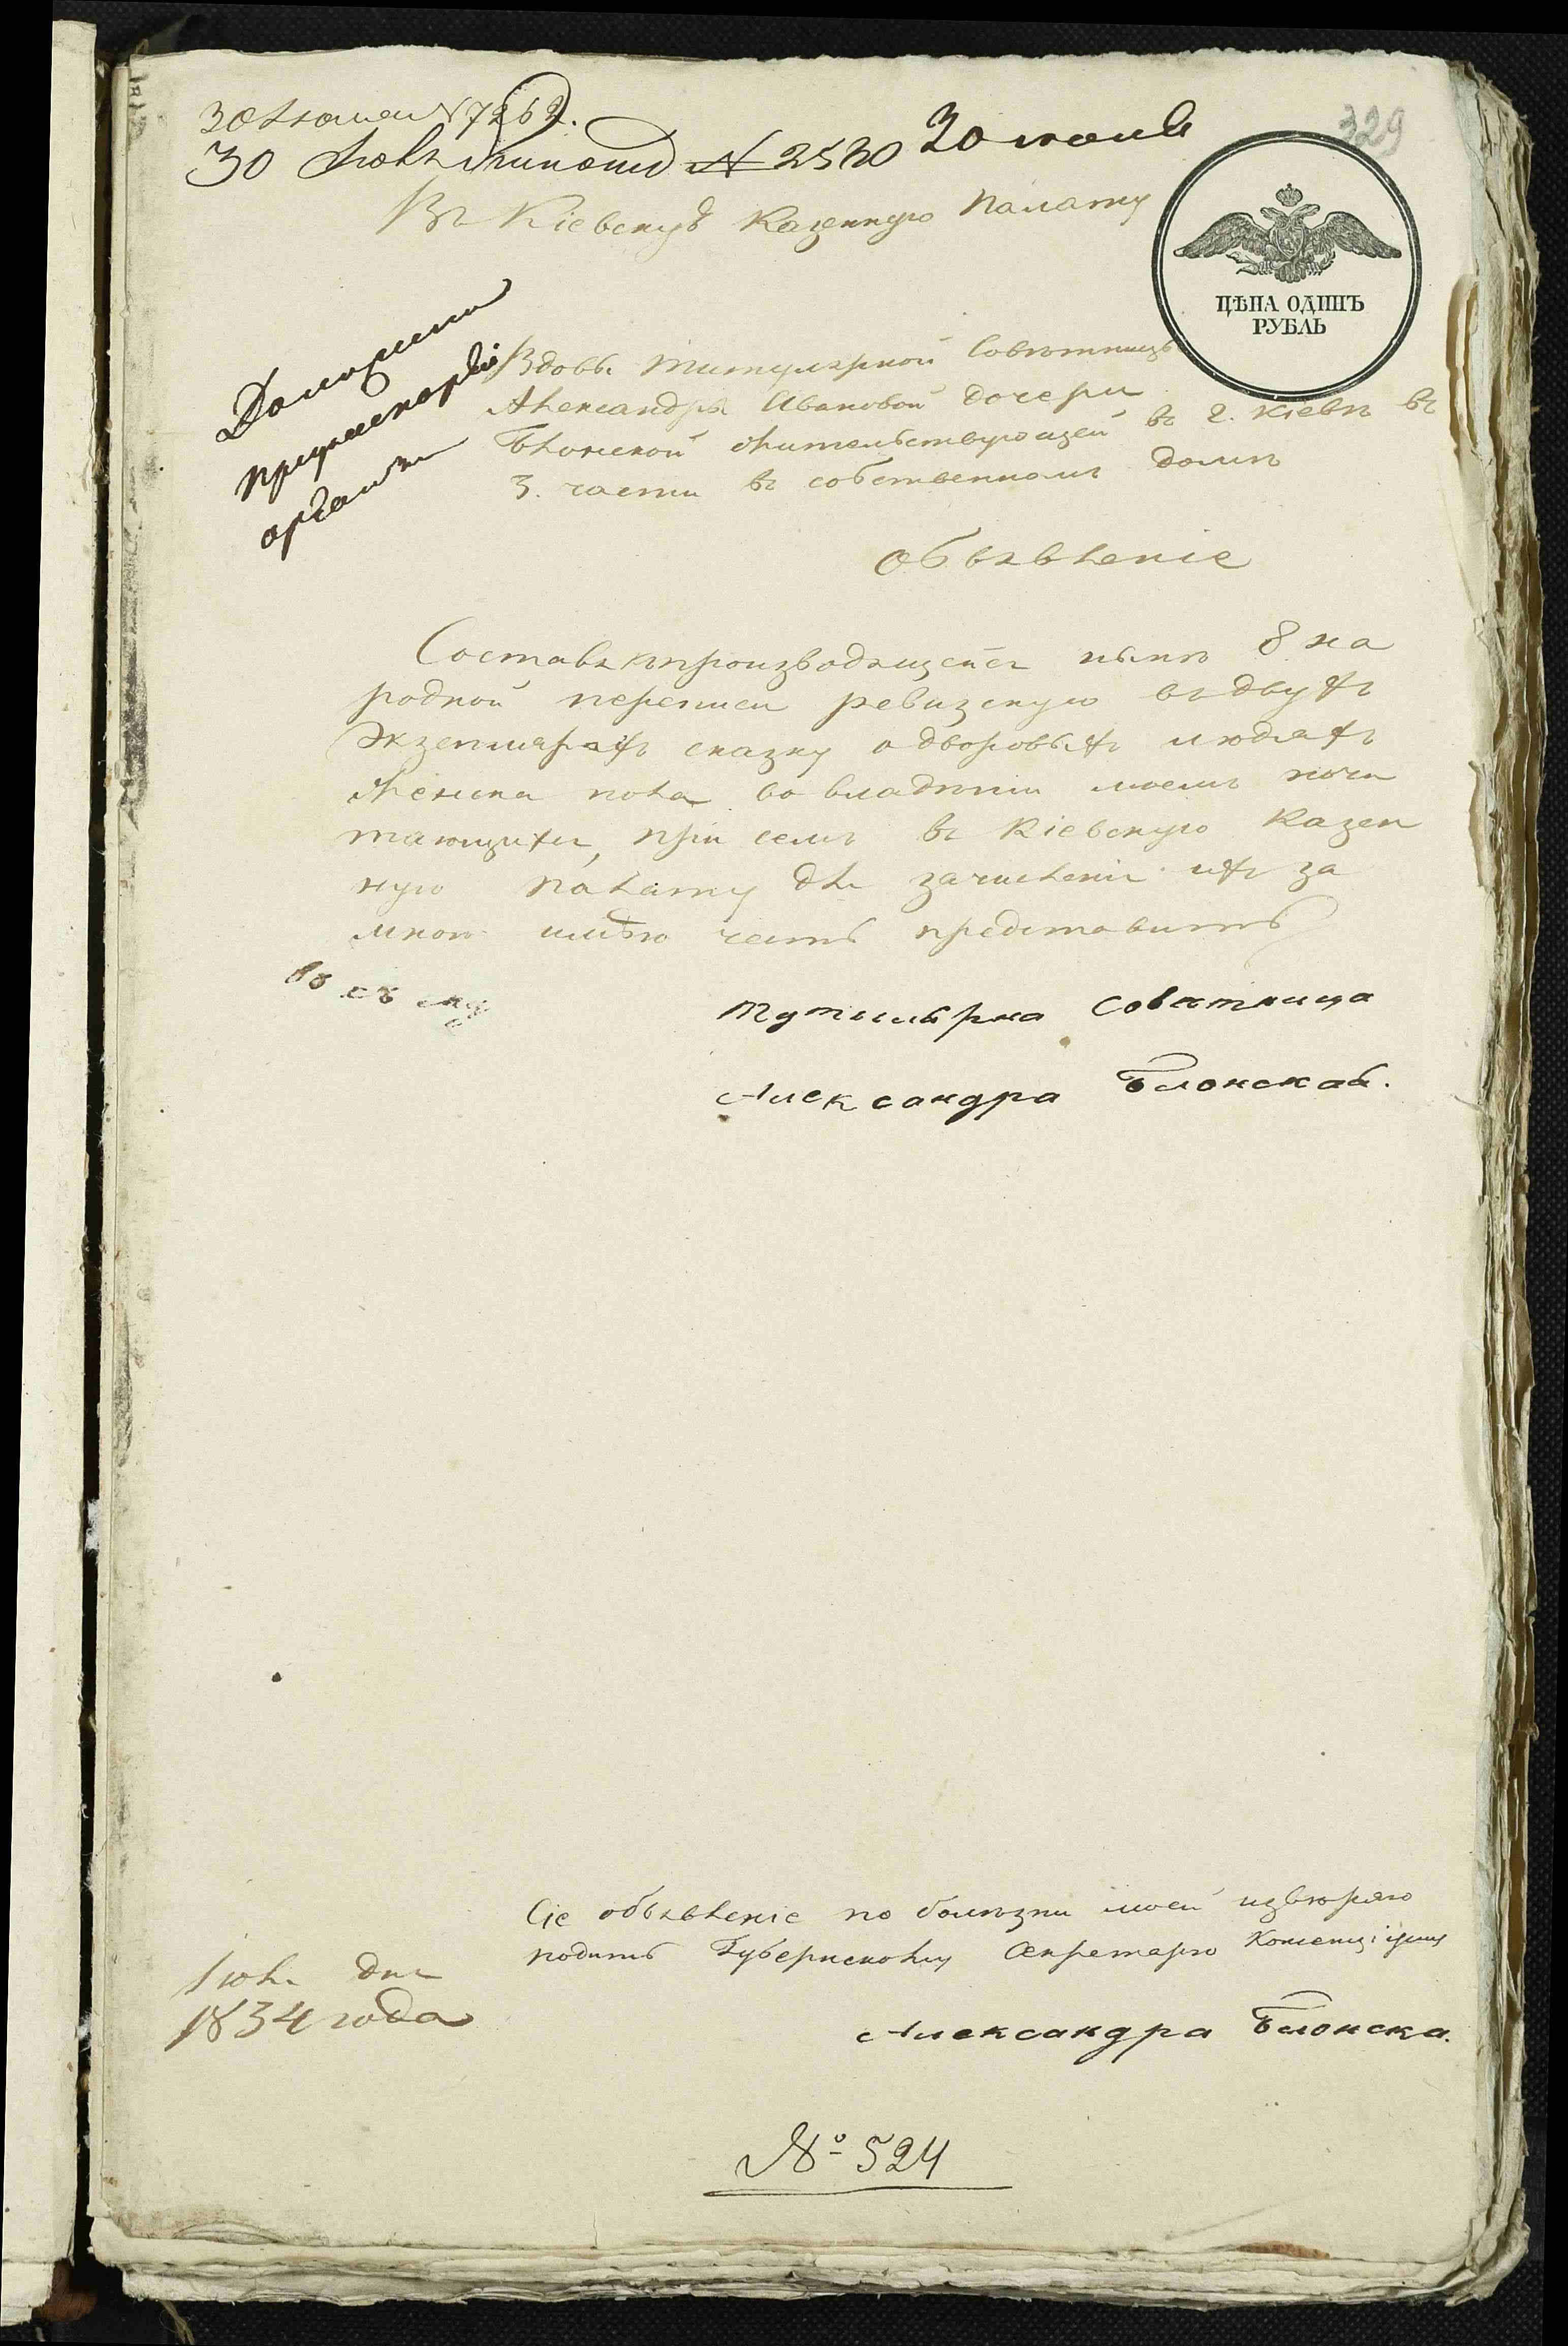 329
30 Июня N 7262.
30 № 2530 30 июня
Въ Кіевскую Казенную Палату
ЦѢНА ОДИНЪ
РУБЛЬ
Вдовы Титулярной Совѣтницы
Александры Ивановой дочери
Блонской жительствующей въ г. Кіевѣ въ
3. части въ собственномъ домѣ
Объявленіе
Составя производящейся нынѣ 8 на
родной переписи ревизскую въ двухъ
Экземплярахъ сказку о дворовыхъ людяхъ
Женска пола во владѣніи моемъ почи
тающихся, при семъ въ Кіевскую Казен
ную палату для зачисленія ихъ за
мною имѣю честь представить
Тутилярна Совѣтница
Александра Блонская.
Сіе объявленіе по болѣзни моей ввѣряю
подать Губернскому Секретарю
Іюня дня
1834 года
Александра Блонска.
№ 524